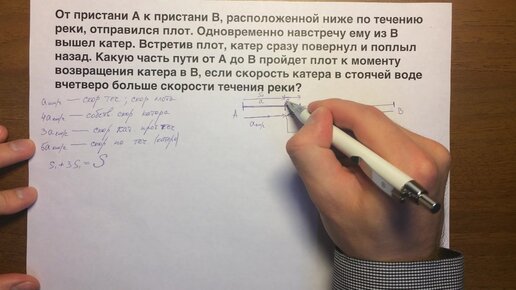 От пристани А к пристани В, расположенной ниже по течению
реки, отправился плот. Одновременно навстречу ему из В
вышел катер. Встретив плот, катер сразу повернул и поплыл
назад. Какую часть пути от А до В пройдет плот к моменту
возвращения катера в В, если скорость катера в стоячей воде
вчетверо больше скорости течения реки?
S₁
a
A
B
a — скор теч, скор плота
4a — собств скор катера
3a — скор кат
5a — скор по теч (катера)
S₁ + 3S₁ = S